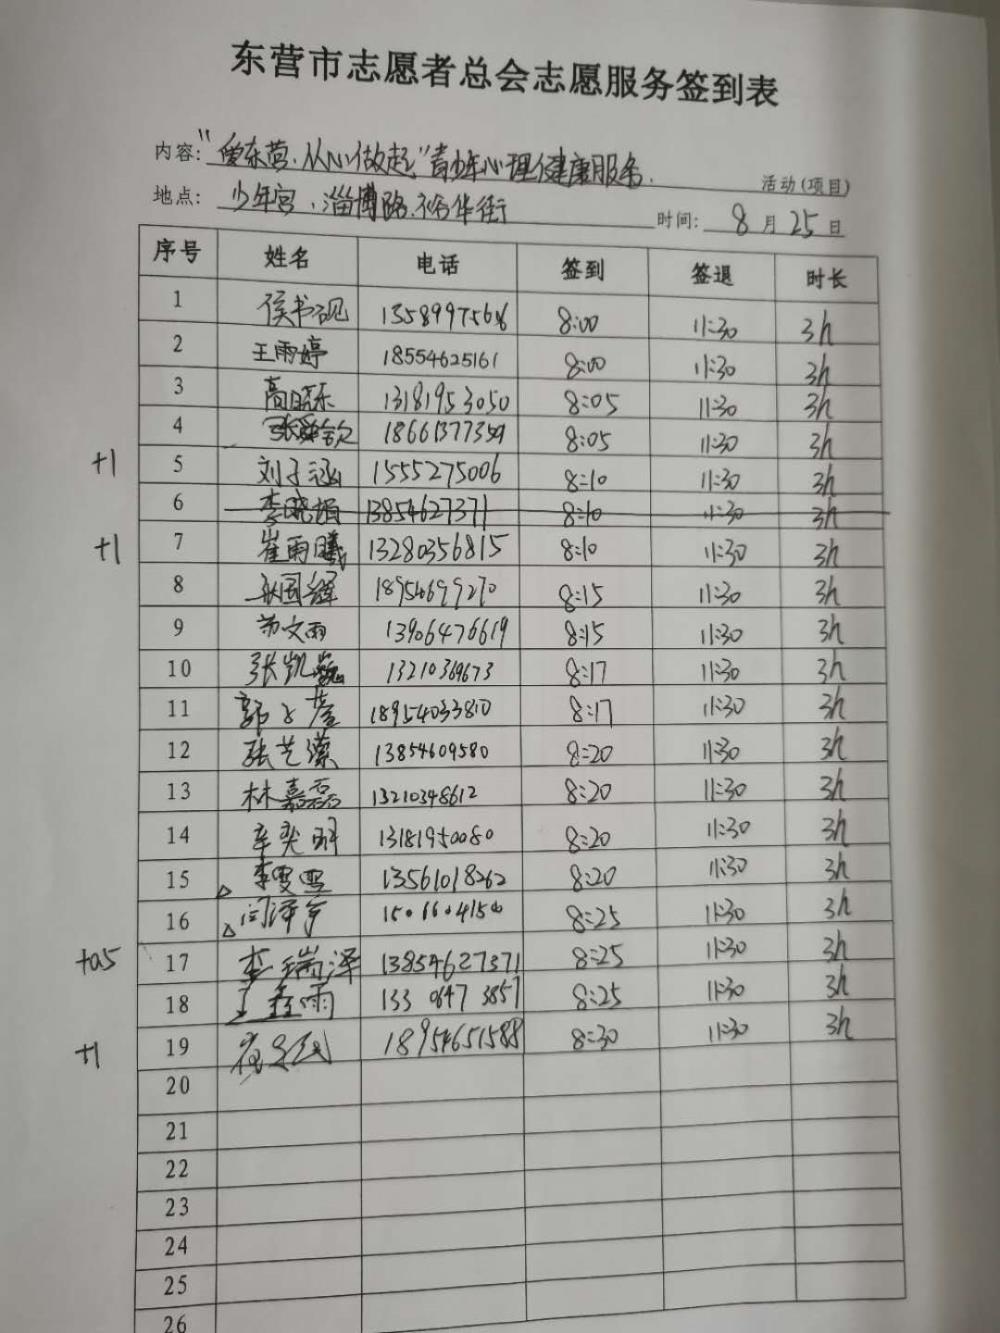 东营市志愿者总会志愿服务签到表
内容: "爱东营.从心做起"青少年心理健康服务. 活动(项目)
地点: 少年宫、淄博路.裕华街 时间: 8月25日
序号 姓名 电话 签到 签退 时长
1 侯书砚 8:00 11:30 3h
2 王雨婷 18554625161 8:00 11:30 3h
3 高晓东 13181953050 8:05 11:30 3h
4 8:05 11:30 3h
+1 5 刘子涵 1555275006 8:10 11:30 3h
6 李晓娟 13854627371 8:10 11:30 3h
+1 7 崔雨曦 13280356815 8:10 11:30 3h
8 18954699270 8:15 11:30 3h
9 苏文雨 13906476619 8:15 11:30 3h
10 张凯巍 13210369673 8:17 11:30 3h
11 18954033810 8:17 11:30 3h
12 张艺潆 13854609580 8:20 11:30 3h
13 林嘉磊 13210348612 8:20 11:30 3h
14 辛奕 13181950080 8:20 11:30 3h
△ 15 李雯雪 13561018262 8:20 11:30 3h
△ 16 闫泽宇 8:25 11:30 3h
+0.5 17 李瑞泽 13854627371 8:25 11:30 3h
18 鑫雨 133 0647 3857 8:25 11:30 3h
+1 19 18954651588 8:30 11:30 3h
20
21
22
23
24
25
26